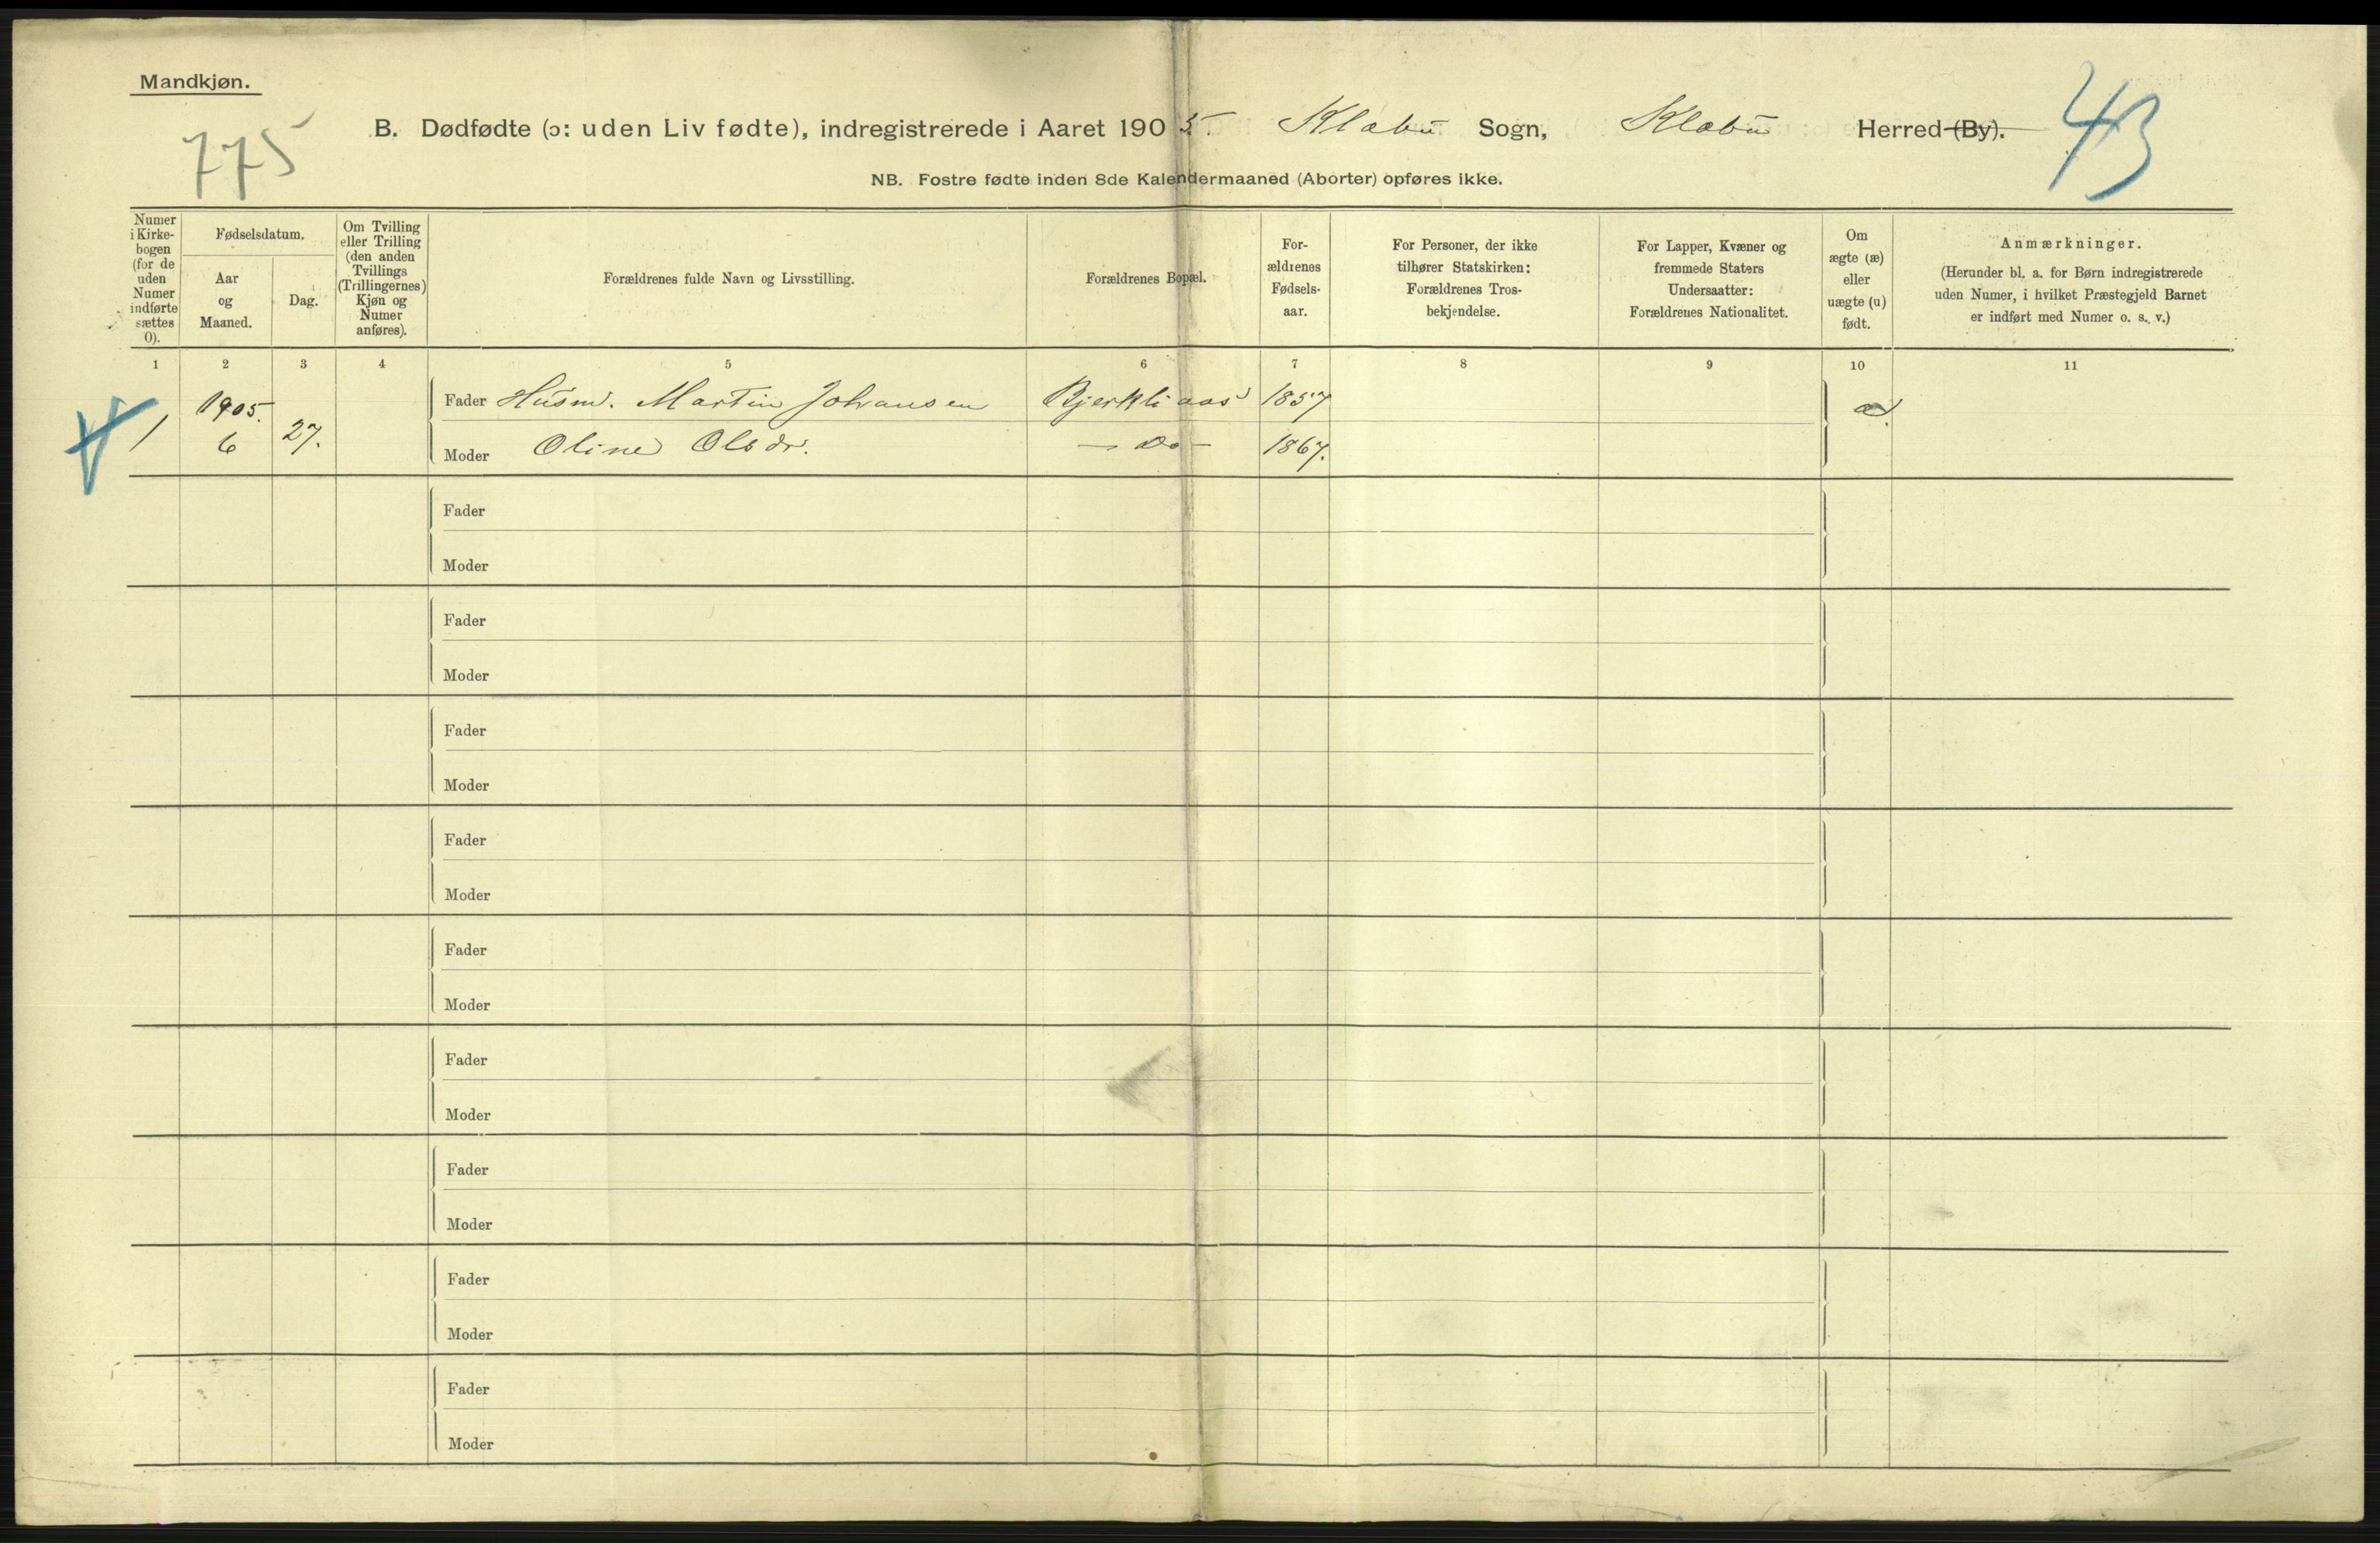 Mandkjøn.
775
B. Dødfødte (ɔ: uden Liv fødte), indregistrerede i Aaret 1905. Klæbu Sogn, Klæbu Herred (By).
43
NB. Fostre fødte inden 8de Kalendermaaned (Aborter) opføres ikke.
Numer
i Kirke-
bogen
(for de
uden
Numer
indførte
sættes
0).
Fødselsdatum.
Aar
og
Maaned.
Dag.
Om Tvilling
eller Trilling
(den anden
Tvillings
(Trillingernes)
Kjøn og
Numer
anføres).
Forældrenes fulde Navn og Livsstilling.
Forældrenes Bopæl.
For-
ældrenes
Fødsels-
aar.
For Personer, der ikke
tilhører Statskirken:
Forældrenes Tros-
bekjendelse.
For Lapper, Kvæner og
fremmede Staters
Undersaatter:
Forældrenes Nationalitet.
Om
ægte (æ)
eller
uægte (u)
født.
Anmærkninger.
(Herunder bl. a. for Børn indregistrerede
uden Numer, i hvilket Præstegjeld Barnet
er indført med Numer o. s. v.)
1 2 3 4 5 6 7 8 9 10 11
1905. Fader Husm. Martin Johansen Bjerkli aas 1857 æ.
1 6 27. Moder Oline Olsdr. — Do — 1867.
Fader
Moder
Fader
Moder
Fader
Moder
Fader
Moder
Fader
Moder
Fader
Moder
Fader
Moder
Fader
Moder
Fader
Moder